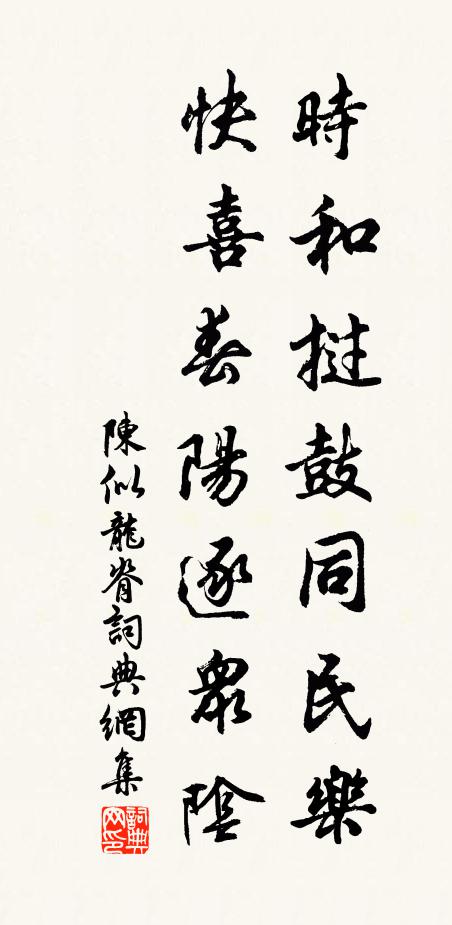 時和撾鼓同民樂
快喜春陽逐眾陰
陳似龍脊詞典網集
詞典網印